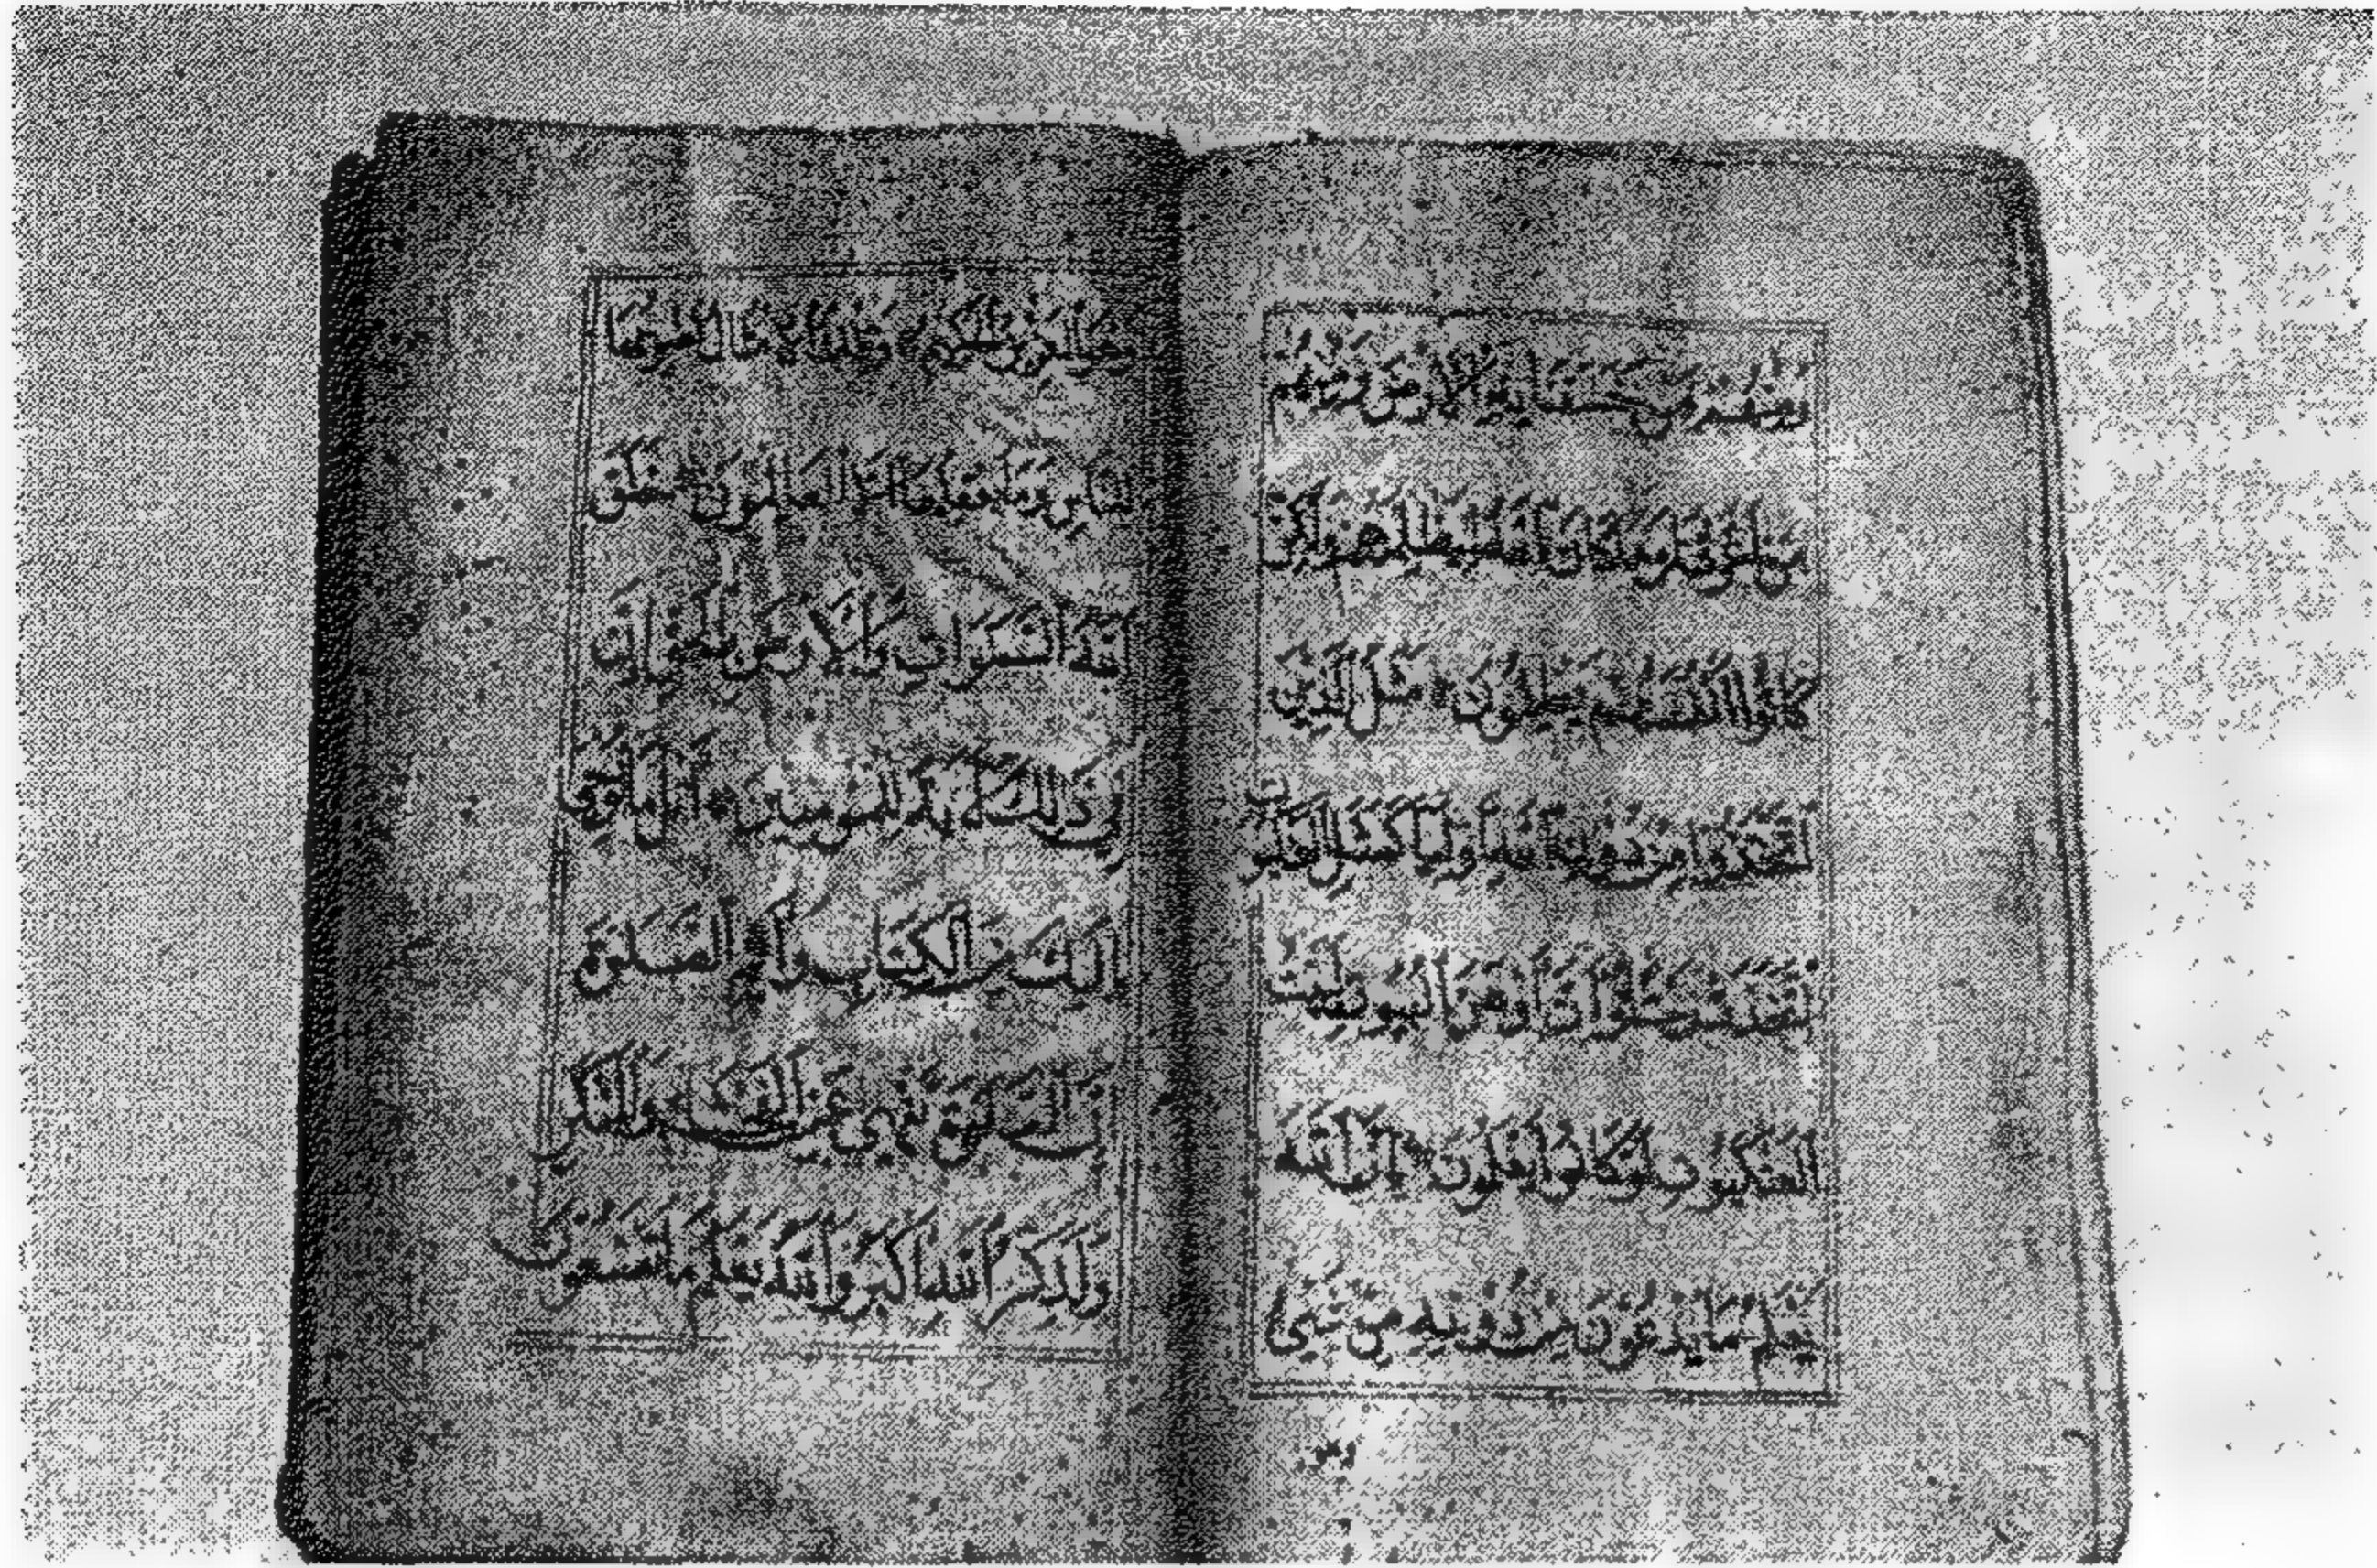 ومنهم من خسفنا به الارض ومنهم
من اغرقنا وما كان الله ليظلمهم ولكن
كانوا انفسهم يظلمون مثل الذين
اتخذوا من دون الله اوليا كمثل العنكبوت
اتخذت بيتا وان اوهن البيوت لبيت
العنكبوت لو كانوا يعلمون ان الله
يعلم ما يدعون من دونه من شيئ
وهو
وهو العزيز الحكيم وتلك الامثال نضربها
للناس وما يعقلها الا العالمون خلق
الله السموات والارض بالحق ان
في ذلك لاية للمومنين اتل ما اوحي
اليك من الكتاب واقم الصلوة
ان الصلوة تنهى عن الفحشاء والمنكر
ولذكر الله اكبر والله يعلم ما تصنعون